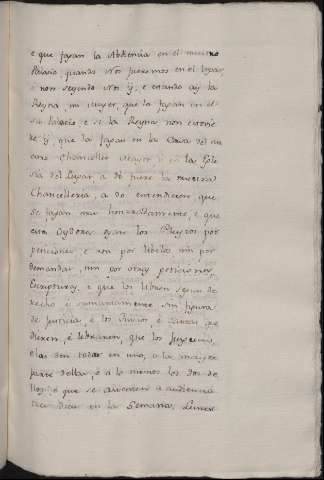 e que fagan la Abdiencia en el nuestro
Palacio quando Nos fueremos en el logar,
e non seyendo Nos y, e estando aý la
Reyna mi muger, que la fagan en el
su Palacio, e si la Reyna non estovie
re ý, que la fagan en la Casa del nu
estro Chanceller Mayor ò en la Igle
sia del Lugar a dò fuere la nuestra
Chancelleria, a do entendieren que
se fagan mas honrradamente, e que
estos Oydores oyan los Pleytos por
peticiones e non por libelos nin por
demandas, nin por otras peticiones,
Escripturas, e que los libren segun de
recho è sumariamente sin figura
de Justicia, è los Juicios, è Cartas que
dieren, è libraren, que los
e las den todas en uno, o la mayor
parte dellos, è a lo menos los dos de
llos, è que se asienten a audiencia
tres dias en la Semana, Lunes